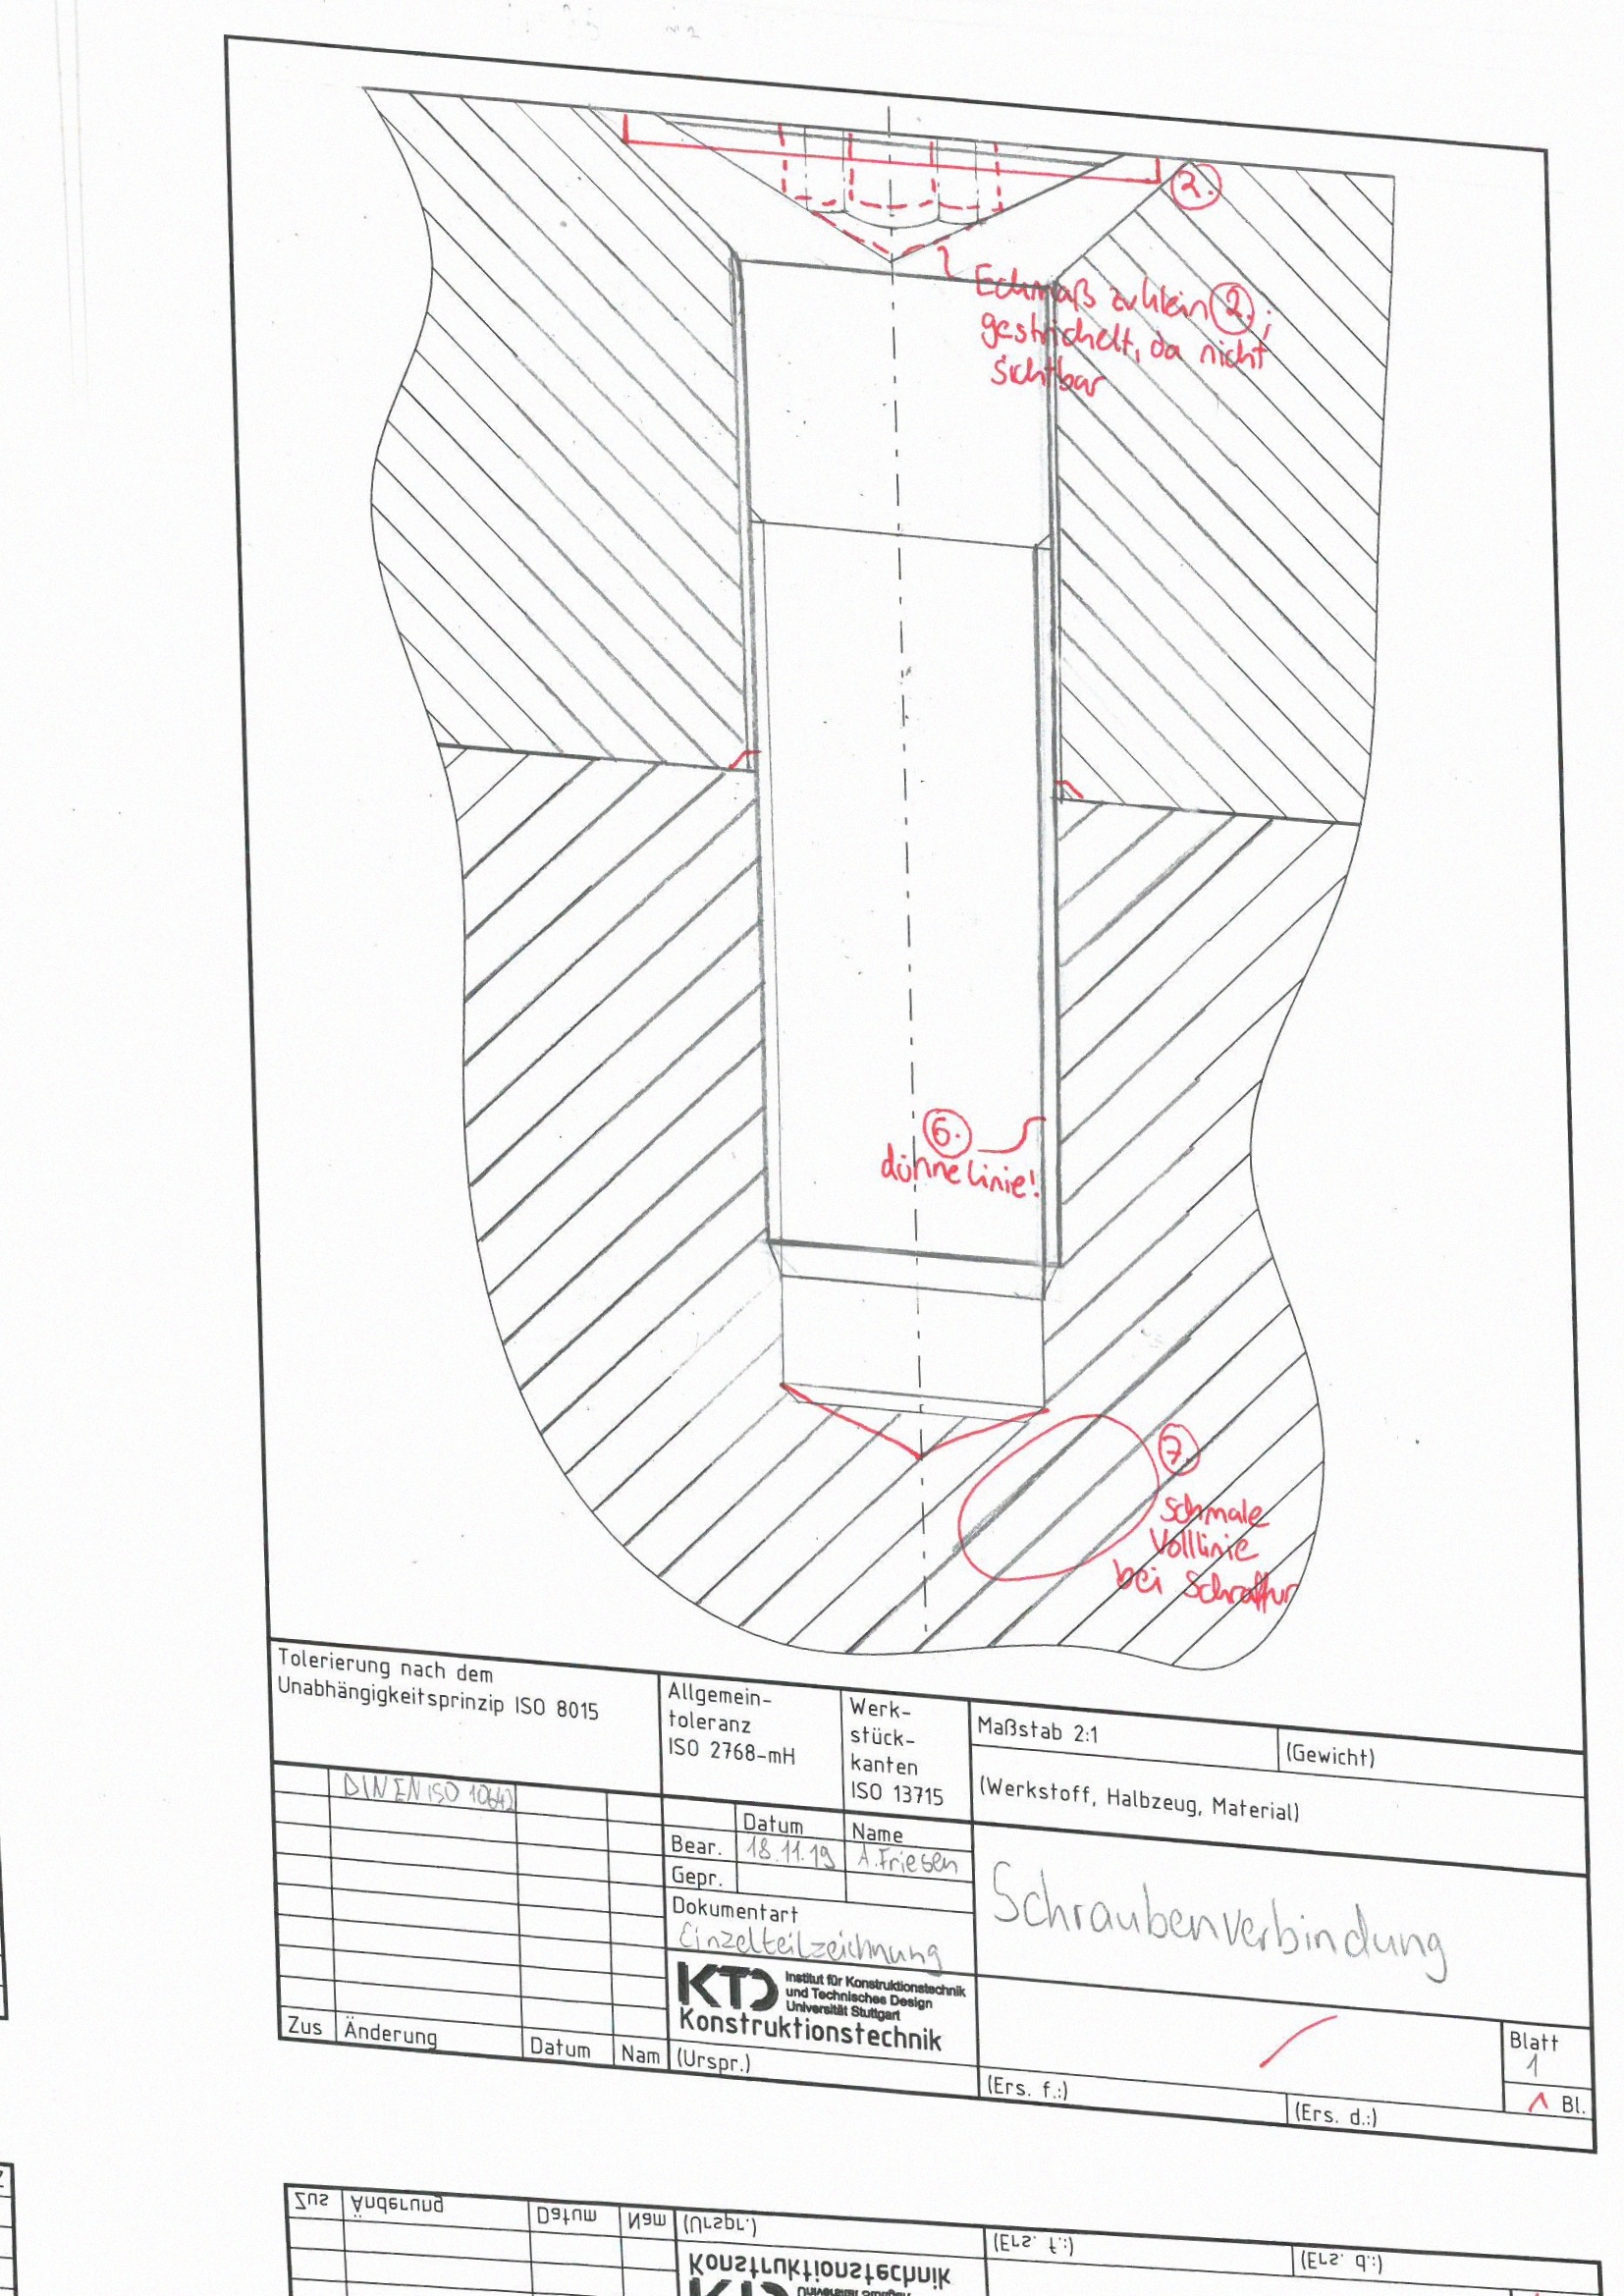 2.
Eckmaß zu klein 2. ;
gestrichelt, da nicht
sichtbar
6.
dünne Linie!
7.
schmale
Volllinie
bei Schraffur
Tolerierung nach dem
Unabhängigkeitsprinzip ISO 8015
Allgemein-
toleranz
ISO 2768-mH
Werk-
stück-
kanten
ISO 13715
Maßstab 2:1
(Gewicht)
(Werkstoff, Halbzeug, Material)
DIN EN ISO 10642
Datum
Name
Bear.
18.11.19
A.Friesen
Gepr.
Dokumentart
Einzelteilzeichnung
Schraubenverbindung
KTD
Institut für Konstruktionstechnik
und Technisches Design
Universität Stuttgart
Konstruktionstechnik
Zus
Änderung
Datum
Nam
(Urspr.)
(Ers. f.:)
(Ers. d.:)
Blatt
1
1 Bl.
Zus
Änderung
Datum
Nam
(Urspr.)
(Ers. f.:)
(Ers. d.:)
Konstruktionstechnik